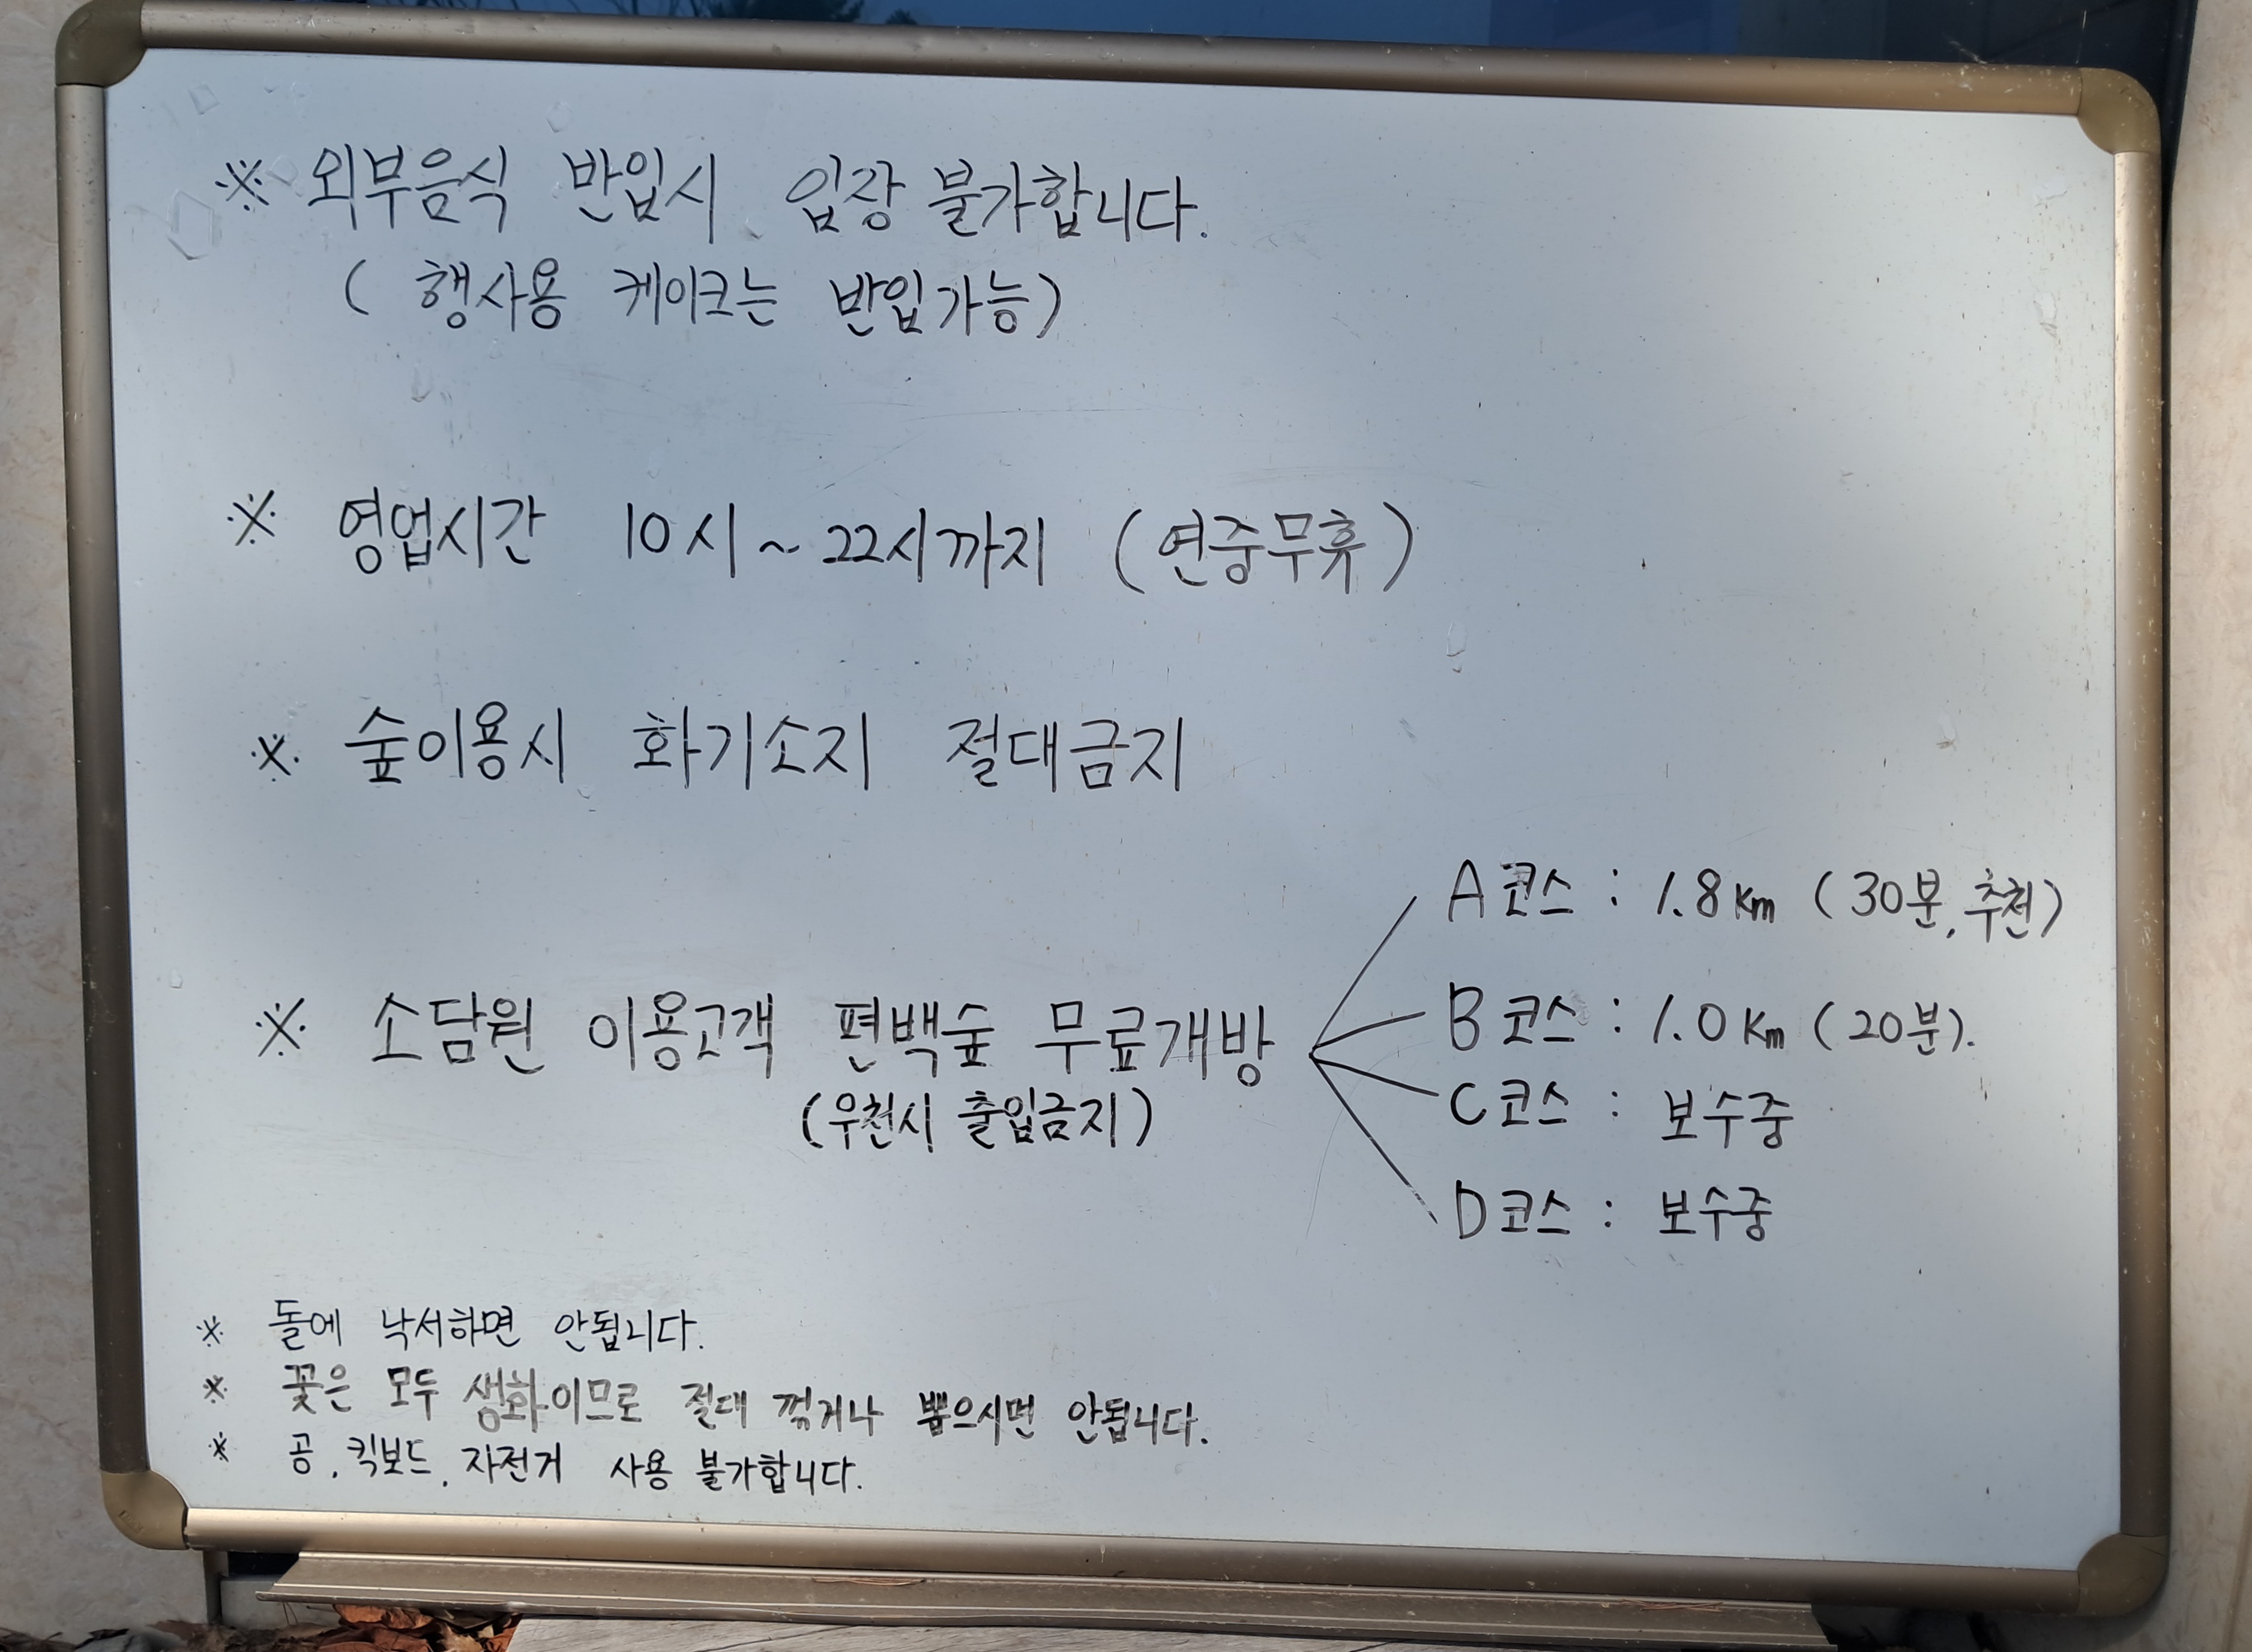 ※ 외부음식 반입시 입장 불가합니다.
( 행사용 케이크는 반입가능)
※ 영업시간 10시~22시까지 (연중무휴)
※ 숲이용시 화기소지 절대금지
※ 소담원 이용고객 편백숲 무료개방
(우천시 출입금지)
A코스 : 1.8km (30분, 추천)
B코스 : 1.0km (20분).
C코스 : 보수중
D코스 : 보수중
※ 돌에 낙서하면 안됩니다.
※ 꽃은 모두 생화이므로 절대 꺾거나 뽑으시면 안됩니다.
※ 공, 킥보드, 자전거 사용 불가합니다.